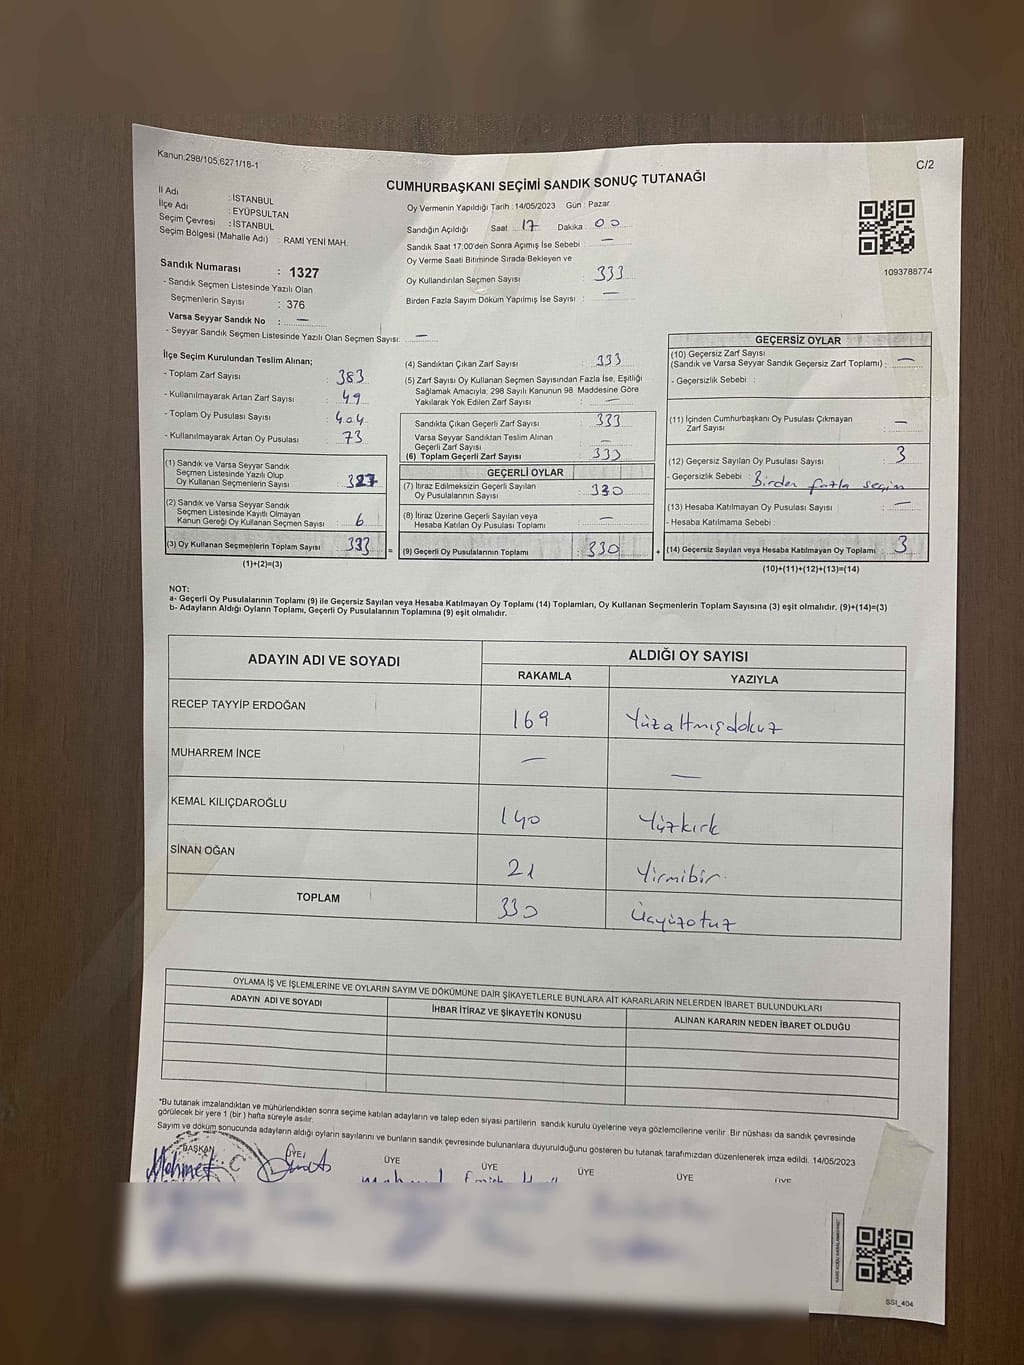 Kanun;298/105;6271/18-1
C/2
CUMHURBAŞKANI SEÇİMİ SANDIK SONUÇ TUTANAĞI
İl Adı : İSTANBUL
İlçe Adı : EYÜPSULTAN
Seçim Çevresi : İSTANBUL
Seçim Bölgesi (Mahalle Adı) : RAMİ YENİ MAH.
Sandık Numarası : 1327
- Sandık Seçmen Listesinde Yazılı Olan
Seçmenlerin Sayısı : 376
Varsa Seyyar Sandık No : —
- Seyyar Sandık Seçmen Listesinde Yazılı Olan Seçmen Sayısı: —
Oy Vermenin Yapıldığı Tarih : 14/05/2023 Gün : Pazar
Sandığın Açıldığı Saat 17 Dakika 00
Sandık Saat 17:00'den Sonra Açımış İse Sebebi —
Oy Verme Saati Bitiminde Sırada Bekleyen ve
Oy Kullandırılan Seçmen Sayısı 333
Birden Fazla Sayım Döküm Yapılmış İse Sayısı : —
1093788774
İlçe Seçim Kurulundan Teslim Alınan;
- Toplam Zarf Sayısı : 383
- Kullanılmayarak Artan Zarf Sayısı : 49
- Toplam Oy Pusulası Sayısı : 404
- Kullanılmayarak Artan Oy Pusulası : 73
(1) Sandık ve Varsa Seyyar Sandık
Seçmen Listesinde Yazılı Olup
Oy Kullanan Seçmenlerin Sayısı : 327
(2) Sandık ve Varsa Seyyar Sandık
Seçmen Listesinde Kayıtlı Olmayan
Kanun Gereği Oy Kullanan Seçmen Sayısı : 6
(3) Oy Kullanan Seçmenlerin Toplam Sayısı : 333 =
(1)+(2)=(3)
(4) Sandıktan Çıkan Zarf Sayısı : 333
(5) Zarf Sayısı Oy Kullanan Seçmen Sayısından Fazla İse, Eşitliği
Sağlamak Amacıyla; 298 Sayılı Kanunun 98. Maddesine Göre
Yakılarak Yok Edilen Zarf Sayısı : —
Sandıkta Çıkan Geçerli Zarf Sayısı : 333
Varsa Seyyar Sandıktan Teslim Alınan
Geçerli Zarf Sayısı : —
(6) Toplam Geçerli Zarf Sayısı : 333
GEÇERLİ OYLAR
(7) İtiraz Edilmeksizin Geçerli Sayılan
Oy Pusulalarının Sayısı : 330
(8) İtiraz Üzerine Geçerli Sayılan veya
Hesaba Katılan Oy Pusulası Toplamı : —
(9) Geçerli Oy Pusulalarının Toplamı : 330 +
GEÇERSİZ OYLAR
(10) Geçersiz Zarf Sayısı
(Sandık ve Varsa Seyyar Sandık Geçersiz Zarf Toplamı) : —
- Geçersizlik Sebebi :
(11) İçinden Cumhurbaşkanı Oy Pusulası Çıkmayan
Zarf Sayısı : —
(12) Geçersiz Sayılan Oy Pusulası Sayısı : 3
- Geçersizlik Sebebi : Birden fazla seçim
(13) Hesaba Katılmayan Oy Pusulası Sayısı : —
- Hesaba Katılmama Sebebi :
(14) Geçersiz Sayılan veya Hesaba Katılmayan Oy Toplamı : 3
(10)+(11)+(12)+(13)=(14)
NOT:
a- Geçerli Oy Pusulalarının Toplamı (9) ile Geçersiz Sayılan veya Hesaba Katılmayan Oy Toplamı (14) Toplamları, Oy Kullanan Seçmenlerin Toplam Sayısına (3) eşit olmalıdır. (9)+(14)=(3)
b- Adayların Aldığı Oyların Toplamı, Geçerli Oy Pusulalarının Toplamına (9) eşit olmalıdır.
ADAYIN ADI VE SOYADI
ALDIĞI OY SAYISI
RAKAMLA YAZIYLA
RECEP TAYYİP ERDOĞAN 169 Yüzaltmışdokuz
MUHARREM İNCE — —
KEMAL KILIÇDAROĞLU 140 Yüzkırk
SİNAN OĞAN 21 Yirmibir
TOPLAM 330 Üçyüzotuz
OYLAMA İŞ VE İŞLEMLERİNE VE OYLARIN SAYIM VE DÖKÜMÜNE DAİR ŞİKAYETLERLE BUNLARA AİT KARARLARIN NELERDEN İBARET BULUNDUKLARI
ADAYIN ADI VE SOYADI İHBAR İTİRAZ VE ŞİKAYETİN KONUSU ALINAN KARARIN NEDEN İBARET OLDUĞU
*Bu tutanak imzalandıktan ve mühürlendikten sonra seçime katılan adayların ve talep eden siyasi partilerin sandık kurulu üyelerine veya gözlemcilerine verilir. Bir nüshası da sandık çevresinde
görülecek bir yere 1 (bir) hafta süreyle asılır.
Sayım ve döküm sonucunda adayların aldığı oyların sayılarını ve bunların sandık çevresinde bulunanlara duyurulduğunu gösteren bu tutanak tarafımızdan düzenlenerek imza edildi. 14/05/2023
BAŞKAN ÜYE ÜYE ÜYE ÜYE ÜYE ÜYE
Mehmet
SSI_404